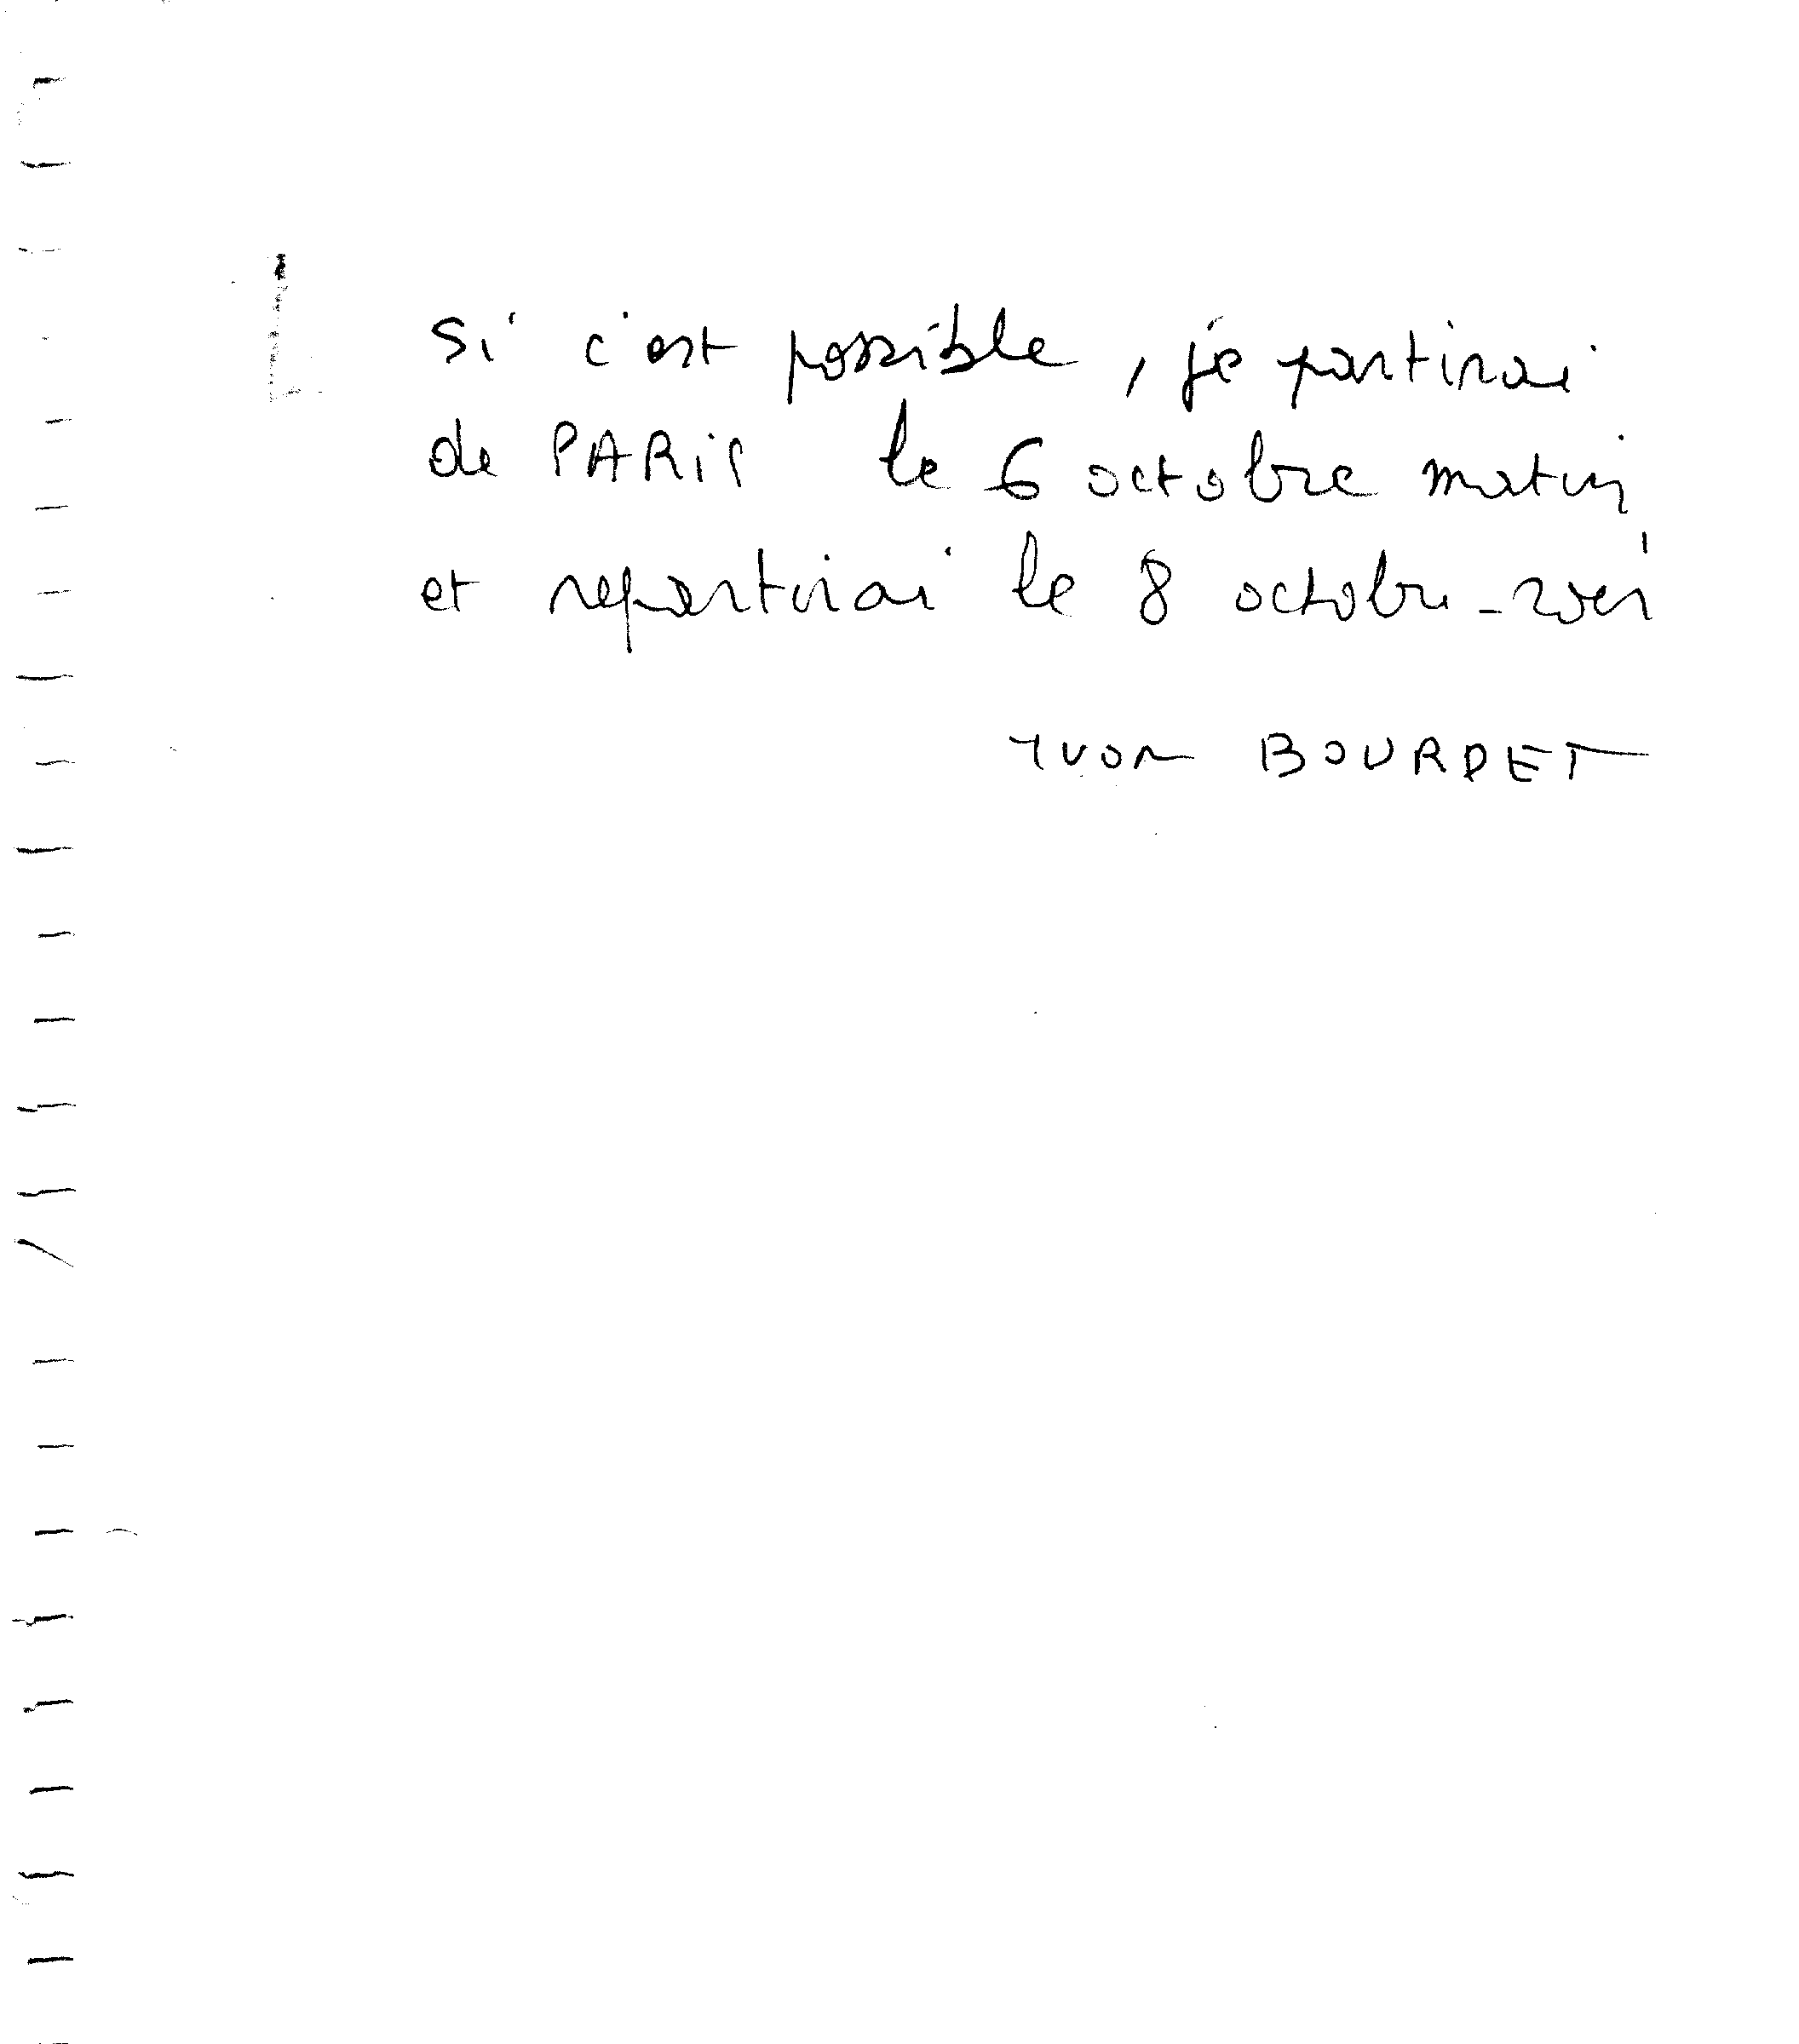 Si c'est possible, je partirai
de PARIS le 6 octobre matin
et repartirai le 8 octobre - soir
YVON BOURDET